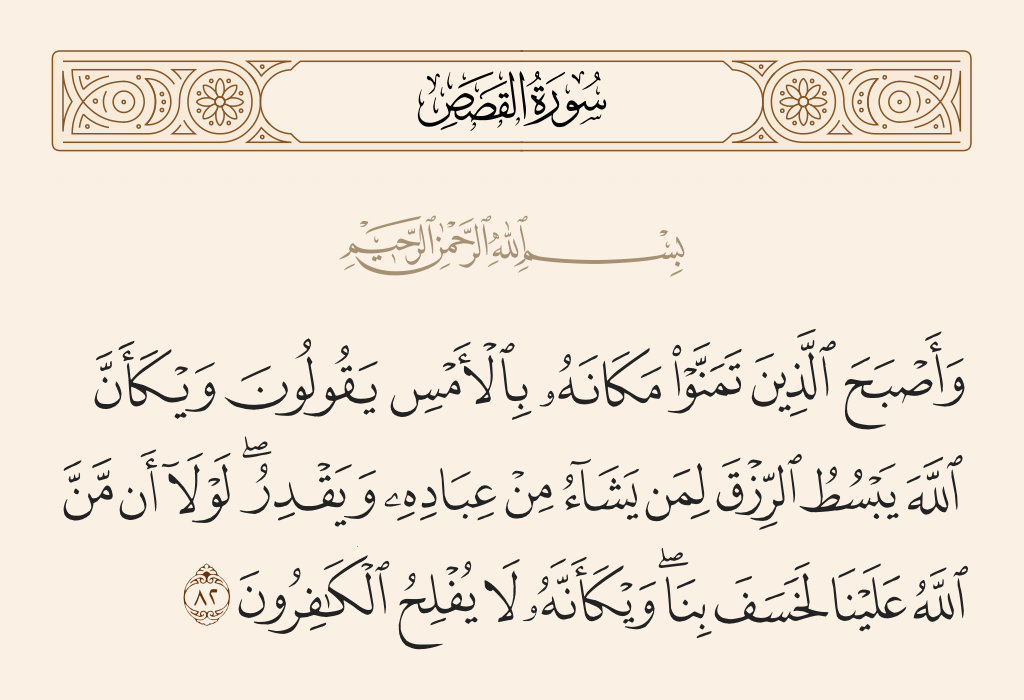 سُورَةُ القَصَصِ
بِسْمِ ٱللَّهِ ٱلرَّحْمَٰنِ ٱلرَّحِيمِ
وَأَصْبَحَ ٱلَّذِينَ تَمَنَّوْا۟ مَكَانَهُۥ بِٱلْأَمْسِ يَقُولُونَ وَيْكَأَنَّ
ٱللَّهَ يَبْسُطُ ٱلرِّزْقَ لِمَن يَشَآءُ مِنْ عِبَادِهِۦ وَيَقْدِرُ ۖ لَوْلَآ أَن مَّنَّ
ٱللَّهُ عَلَيْنَا لَخَسَفَ بِنَا ۖ وَيْكَأَنَّهُۥ لَا يُفْلِحُ ٱلْكَٰفِرُونَ ٨٢